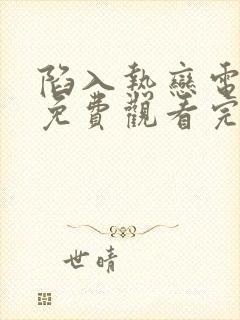 陷入熱戀電
免費觀看完
世晴